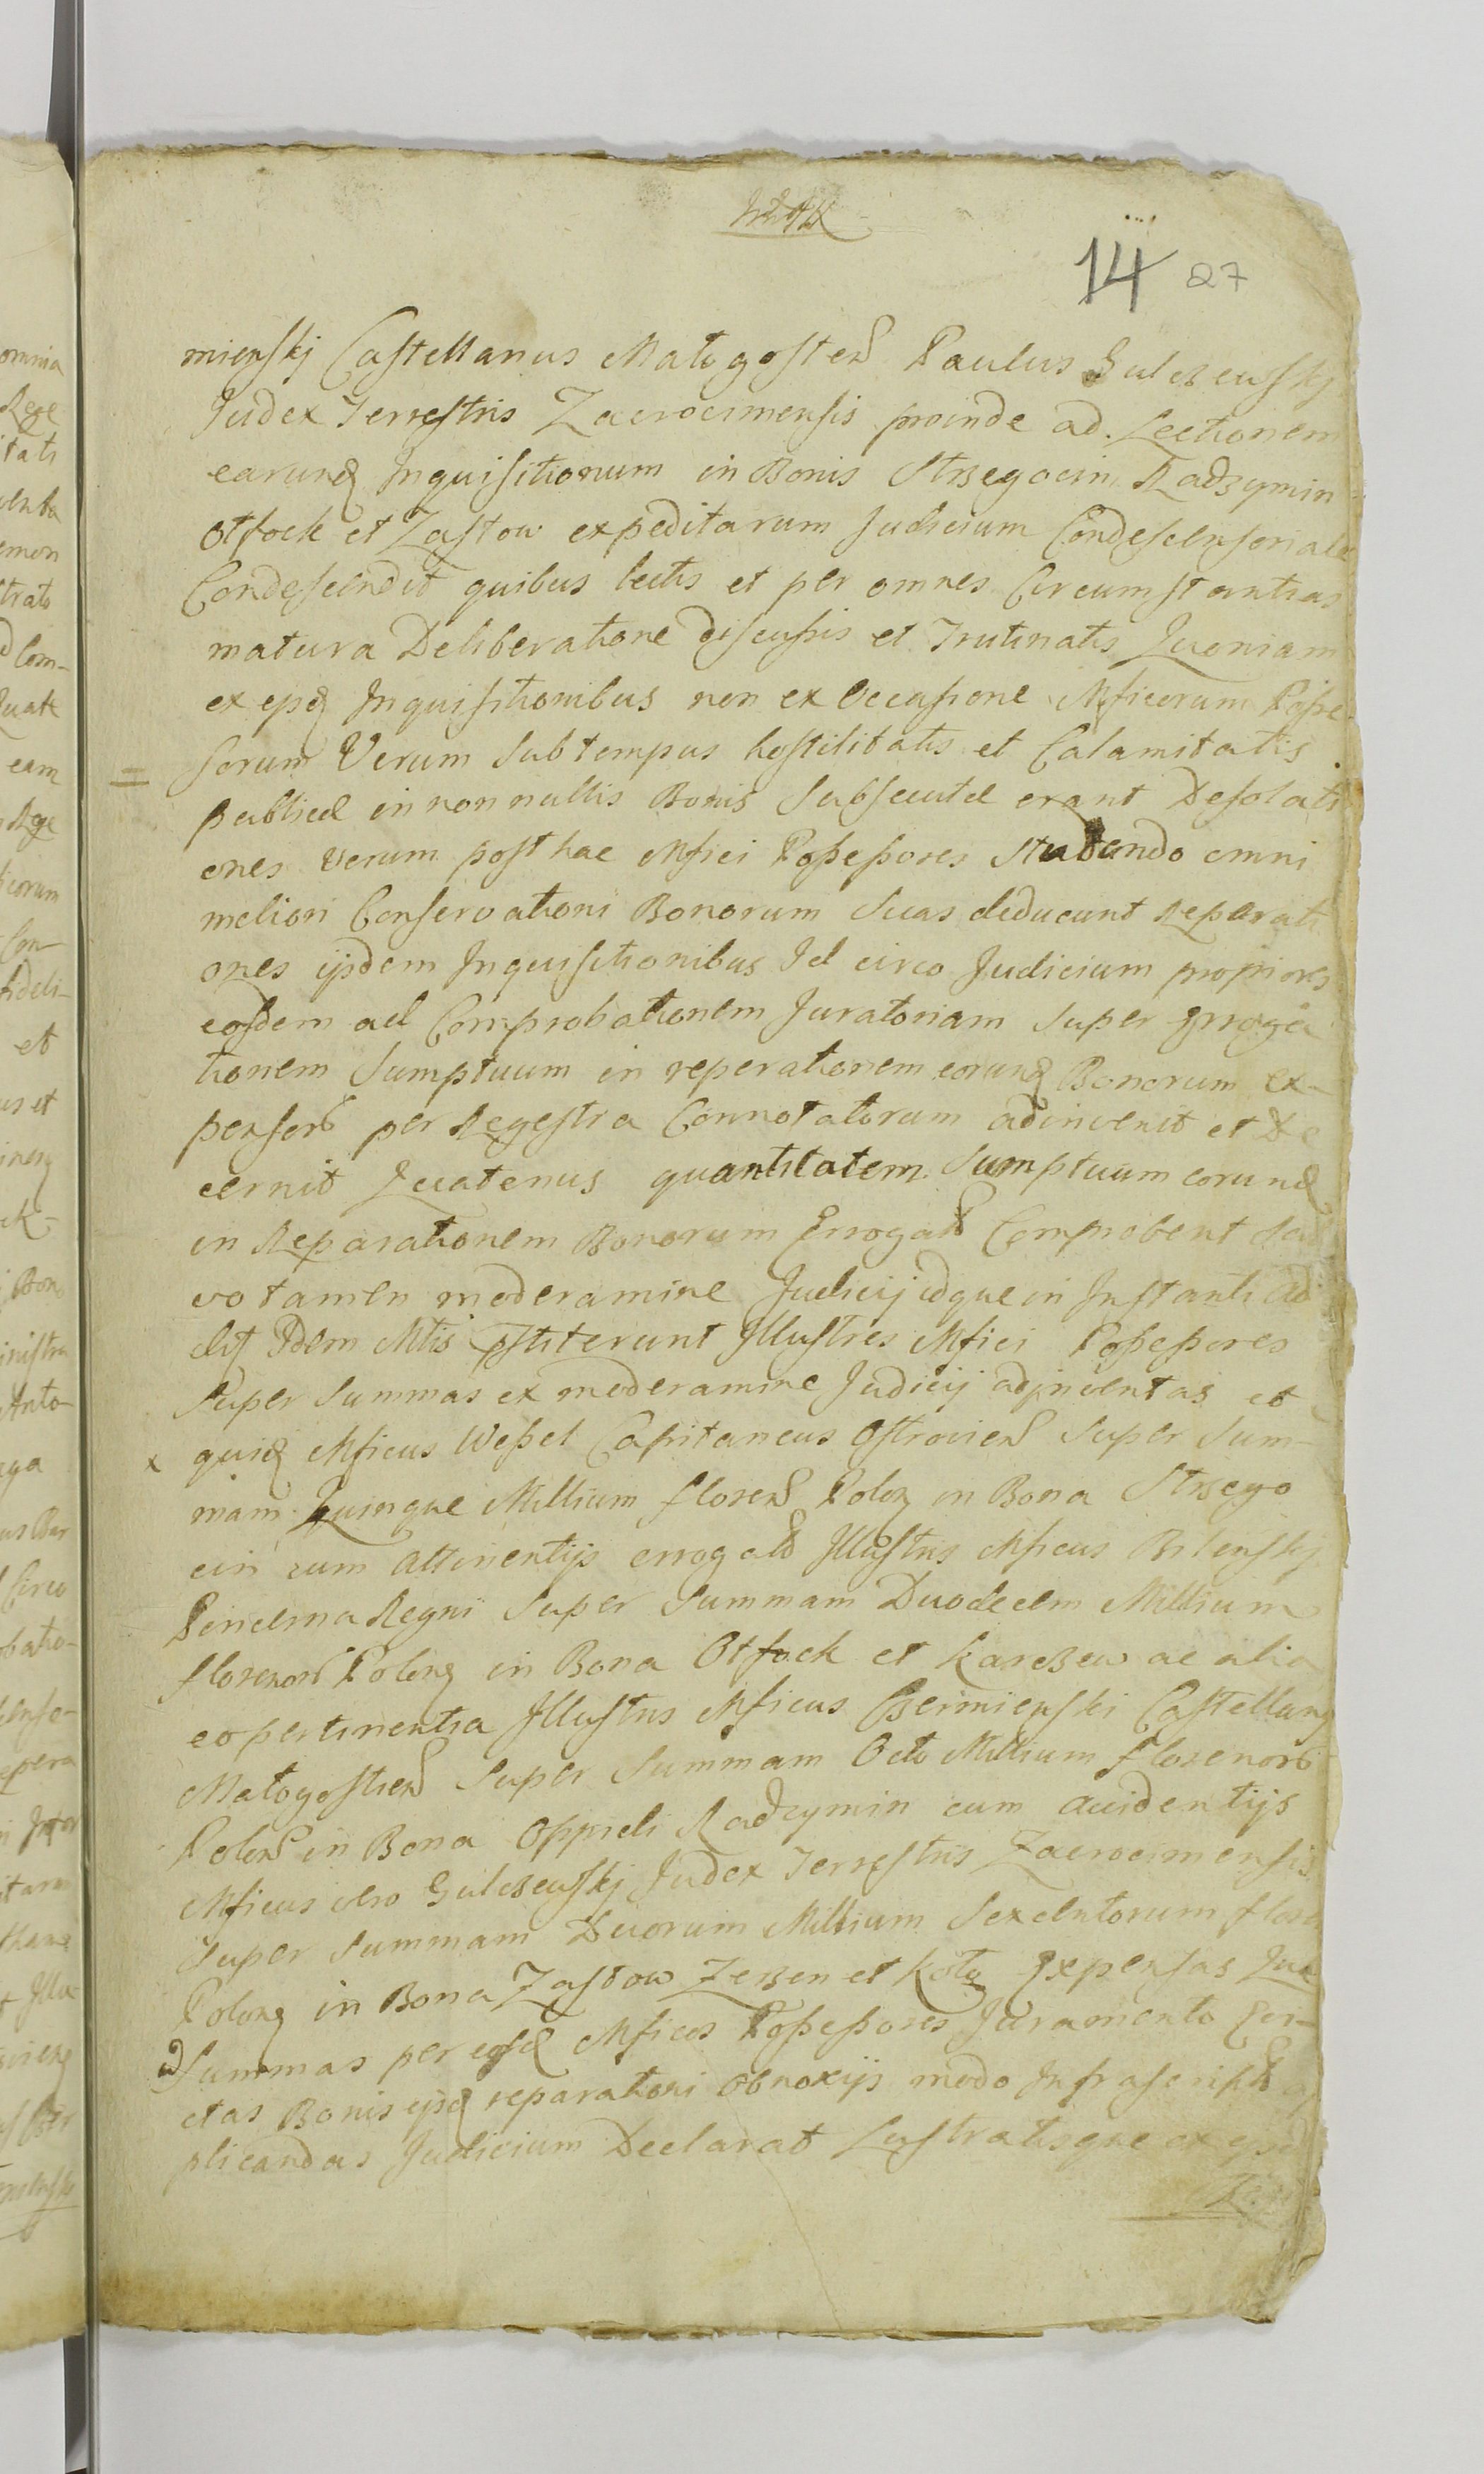 14 27
mienskj Castellanus Małogosten Paulus Gulczewskj
Judex Terrestris Zacrocimensis proinde ad Lectionem
earundq Inquisitionum in Bonis Strzegocin Radzymin
Otfock et Zastow expeditarum Judicium Condescensoriale
Condescendit quibus lectis et per omnes Circumstantias
matura Deliberatione discussis et Trutinatis Quoniam
ex ijsdq Inquisitionibus non ex Occasione Mficorum Posse
sorum Verum sub tempus hostilitatis et Calamitatis
publicæ in non nullis Bonis Subsecutæ erant Desolati
ones verum post hac Mfici Possessores Studendo omni
meliori Conservationi Bonorum Suas deducunt Reparati
ones ijsdem Inquisitionibus Id circo Judicium propriores
eosdem ad Comprobationem Juratoriam Super Erroga
tionem Sumptuum in reperationem eorundq Bonorum ex-
pensor per Regestra Connotatorum adinvenit et De
cernit Quatenus quantitatem Sumptuum eorundq
in Reparationem Bonorum Errogat Comprobent Sal
vo tamen moderamine Judicij idque in Instanti
Idem Mtis pstiterunt Illustres Mfici Possessores
Super Summas ex moderamine Judicij adjnventas et
quidq Mficus Wessel Capitaneus Ostrovien Super Sum-
mam Quinque Millium floren Polon in Bona Strzego
cin cum attinentijs errogato Illustris Mficus Bilenskj
Pincerna Regni Super Summam Duodecem Millium
florenor Polonq in Bona Otfock et Karczew ac alia
eo pertinentia Illustris Mficus Czermienski Castellanus
Małogostien Super Summam Octo Millium florenor
Polon in Bona Oppidi Radzymin cum accidentijs
Mficus vero Gulczewskj Judex Terrestris Zacrocimensis
Super Summam Duorum Millium Sexcentorum floren
Polonq in Bona Zastow Zerzen et Kąty Expensas Quas
Summas per eosdq Mficos Possessores Juramento Evi-
ctas Bonis ijsdq reparationi obnoxijs modo Infrascripto ap
plicandas Judicium Declarat Lustratisque ex ijsdq